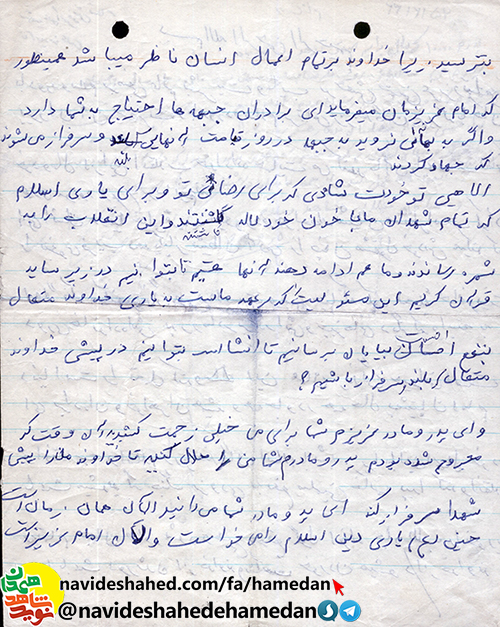 بترسید. زیرا خداوند برتمام اعمال انسان ناظر میباشد همینطور
که امام عزیزمان میفرماید ای برادران جبهه ها احتیاج به شما دارد
واگر به نروید به جبهه در روز قیامت آنهایی بلند و سرفراز می شوند
که جهاد کردند
الاهی تو خودت شاهدی که برای رضای تو و برای یاری اسلام
که تمام شهدان ما با خون خود لاله کاشتند واین انقلاب را به
ثمره رساندند وما هم ادامه دهنده آنها هستیم تا بتوانیم در زیر سایه
قرآن کریم این مسئولیت که بر عهد ماست به یاری خداوند متعال
بنفع به پایان برسانیم تا انشااله بتوانیم در پیش خداوند
متعال سربلند و سرفراز باشیم؟
وای پدر و مادر عزیزم شما برای من خیلی زحمت کشیدید آن وقت که
مجروح شده بودم پدر و مادرم شما من را حلال کنید تا خداوند مارا پیش
شهدا سرفراز کند ای پدر و مادر شما می دانید الآن همان زمان است
حسین یاری دین اسلام را می خواست و الآن امام عزیز است
نوید شاهد همدان
navideshahed.com/fa/hamedan
@navideshahedehamedan